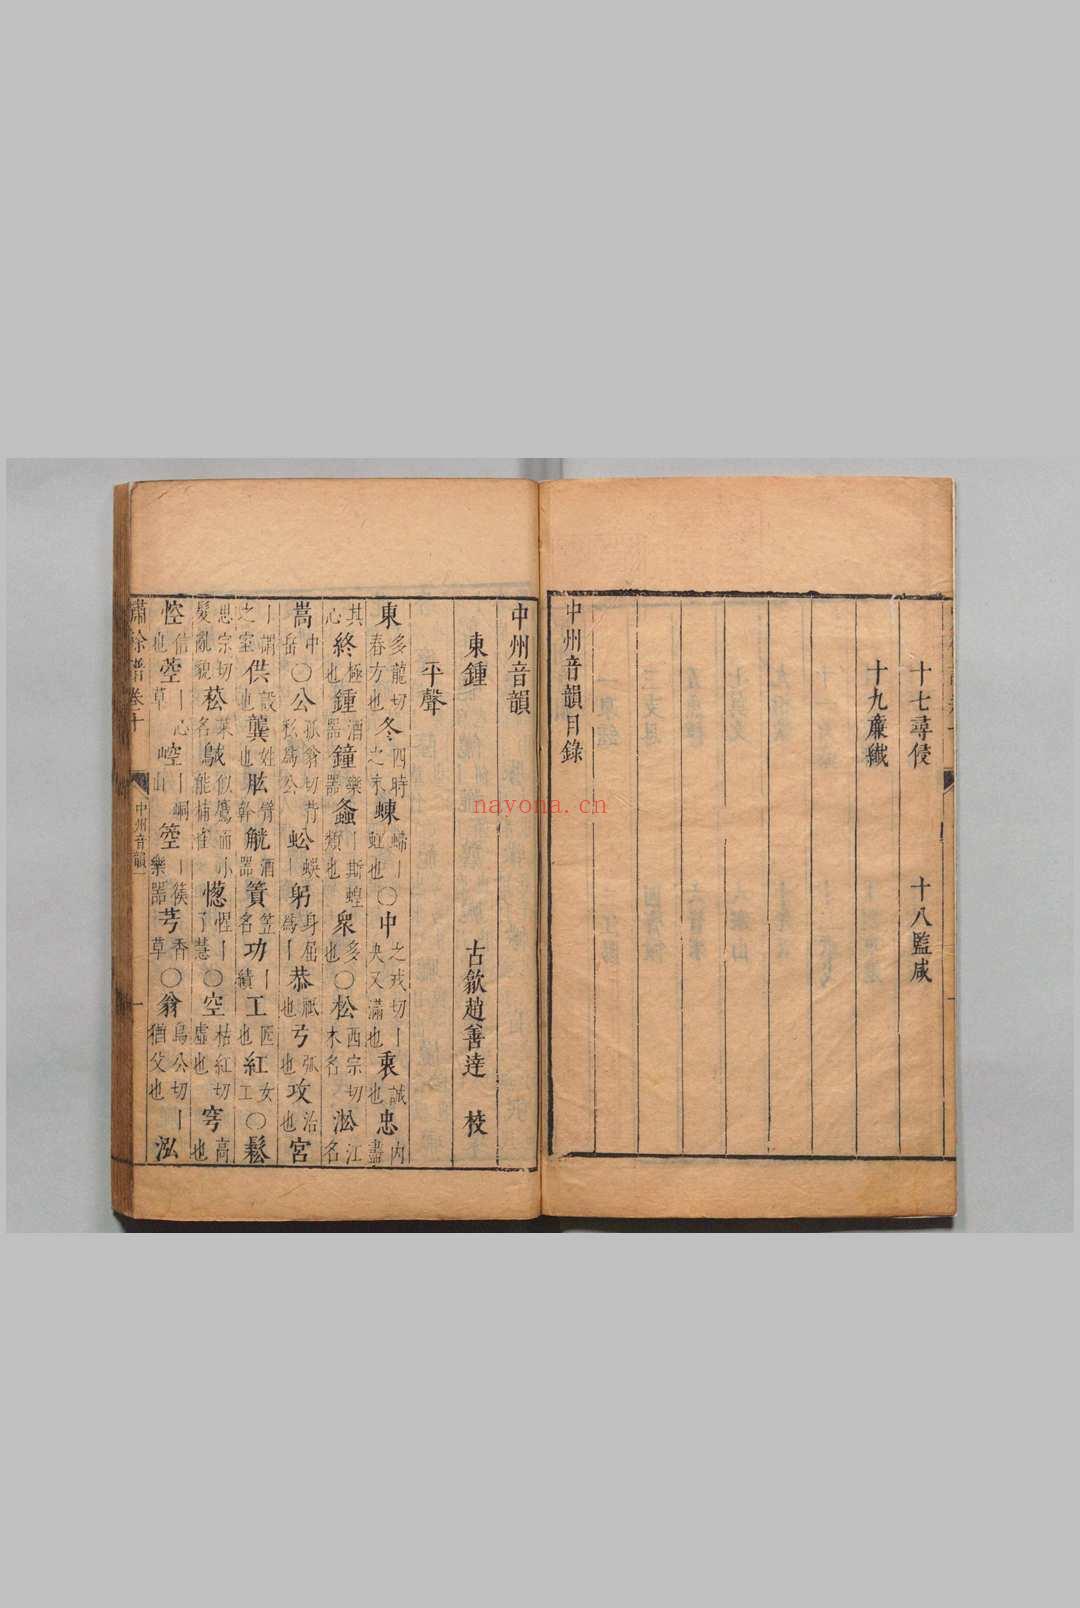 十七尋侵
十八監咸
十九廉纖
中州音韻目錄
中州音韻
東鍾
古歙趙善達 校
平聲
東多龍切春方也冬四時之末蝀螮丨虹也〇中之戎切丨央又滿也衷誠也忠盡內
其心終極也鍾酒器鐘樂器螽丨斯蝗類也衆多也〇松西宗切木名淞江名
嵩中岳〇公孤翁切背私爲公蚣蜈丨躬身屈爲丨恭祗也弓弧也攻治也宮
丨謂之室供設也龔姓也肱臂幹觥酒器簣笠名功丨績工匠也紅女工〇鬆
思宗切髮亂貌菘菜名鳺似鷹而小能捕雀惺丨了慧〇空枯紅切虛也穹高也
悾信也丨心崆丨峒山箜丨篌樂器芎香草〇翁烏公切丨猶父也泓
嘯餘譜卷十
中州音韻
一
nayona.cn